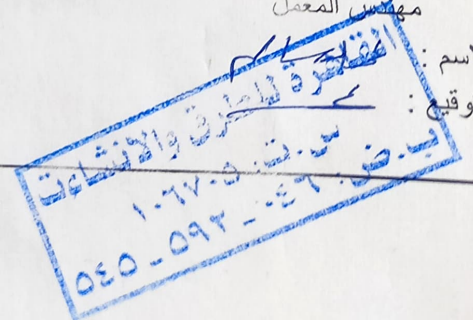 مهندس المعمل
اسم :
وقيع :
القاهرة للطرق والانشاءت
س.ت. ١٠٦٧٠٥
ب.ض. ٠٤٦ - ٥٩٢ - ٥٤٥